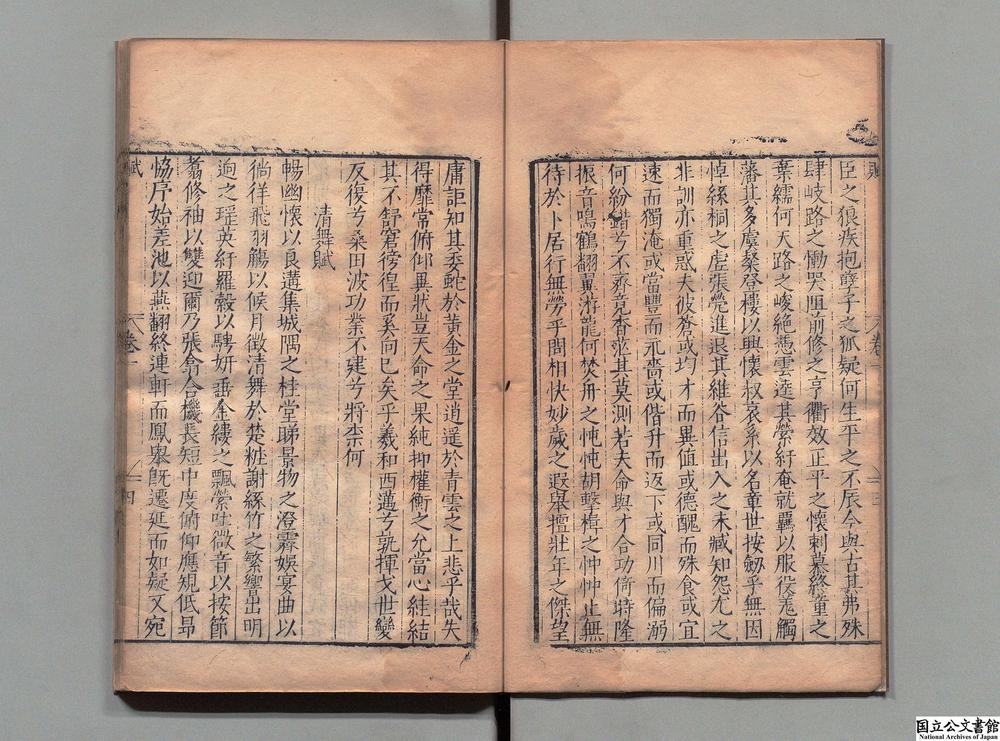 臣之狼疾抱孽子之狐疑何生平之不辰今與古其弗殊
肆岐路之慟哭阻前修之亨衢效正平之懷刺慕終童之
葉繻何天路之峻絶憑雲逵其縈紆奄就羈以服役羌觸
藩其多虞粲登樓以興懷叔哀系以名章世按劔乎無因
悼絲桐之虛張煢進退其維谷信出入之未臧知怨尤之
非訓亦重惑夫彼蒼或均才而異值或德醜而殊食或宜
速而獨淹或當豐而孔嗇或偕升而返下或同川而偏溺
何紛錯兮不齊竟杳茫其莫測若夫命與才合功倚時隆
振音鳴鶴翻翼游龍何焚舟之忳忳胡擊楫之忡忡止無
待於卜居行無勞乎問相快妙歲之遐舉擅壯年之傑望
庸詎知其委蛇於黃金之堂逍遥於青雲之上悲乎哉失
得靡常俯仰異狀豈天命之果純抑權衡之允當心絓結
其不舒窘徬徨而奚向已矣乎羲和西邁兮孰揮戈世變
反復兮桑田波功業不建兮將柰何
清舞賦
暢幽懷以良遘集城隅之桂堂睇景物之澄霽娛宴曲以
徜徉飛羽觴以候月徵清舞於楚粧謝絲竹之繁響出明
逈之瑶英紆羅縠以騁妍垂金縷之飄縈吐微音以按節
翥修袖以雙迎爾乃張翕合機長短中度俯仰應規低昻
恊序始差池以燕翻終連軒而鳳舉旣遷延而如疑又宛
賦
卷一
四
卷一
三
国立公文書館
National Archives of Japan